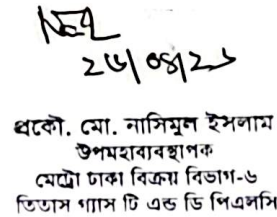 ২৬/০৪/২১
প্রকৌ. মো. নাসিমুল ইসলাম
উপমহাব্যবস্থাপক
মেট্রো ঢাকা বিক্রয় বিভাগ-৬
তিতাস গ্যাস টি এন্ড ডি পিএলসি